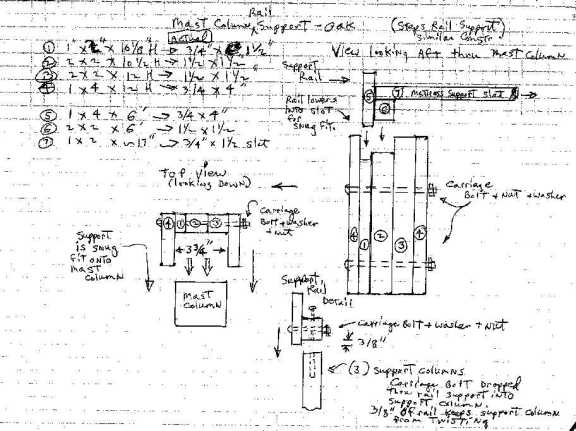 Rail
Mast Column ^ Support - OAK
(Steps Rail Support similar constr.)
Actual
① 1" x 2" x 10 1/8" H → 3/4" x 1 1/2"
② 2 x 2 x 10 1/2 H → 1 1/2 x 1 1/2
③ 2 x 2 x 12 H → 1 1/2 x 1 1/2"
④ 1 x 4 x 12 H → 3/4 x 4"
⑤ 1 x 4 x 6" → 3/4 x 4"
⑥ 2 x 2 x 6" → 1 1/2 x 1 1/2
⑦ 1 x 2 x ~17" → 3/4" x 1 1/2 slat
View looking Aft thru Mast Column
Support
Rail
⑤
⑦ Mattress Support slat
⑥
Rail lowers
into slot
for
snug fit.
Carriage
Bolt + Nut + Washer
④ ① ② ③ ④
Top View
(looking Down)
④ ① ② ③
Carriage
Bolt + Washer
+ Nut
3 3/4"
Support
is snug
fit onto
mast
column
Mast
Column
Support
Rail
Detail
Carriage Bolt + Washer + Nut
3/8"
(3) Support Columns
Carriage Bolt Dropped
thru rail support into
support column.
3/8" of rail keeps support column
from twisting